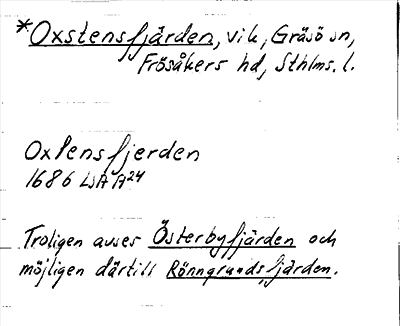 *Oxstensfjärden, vik, Gräsö sn,
Frösåkers hd, Sthlms. l.
Oxstensfjerden
1686 LSA A24
Troligen avses Österbyfjärden och
möjligen därtill Rönngrundsfjärden.